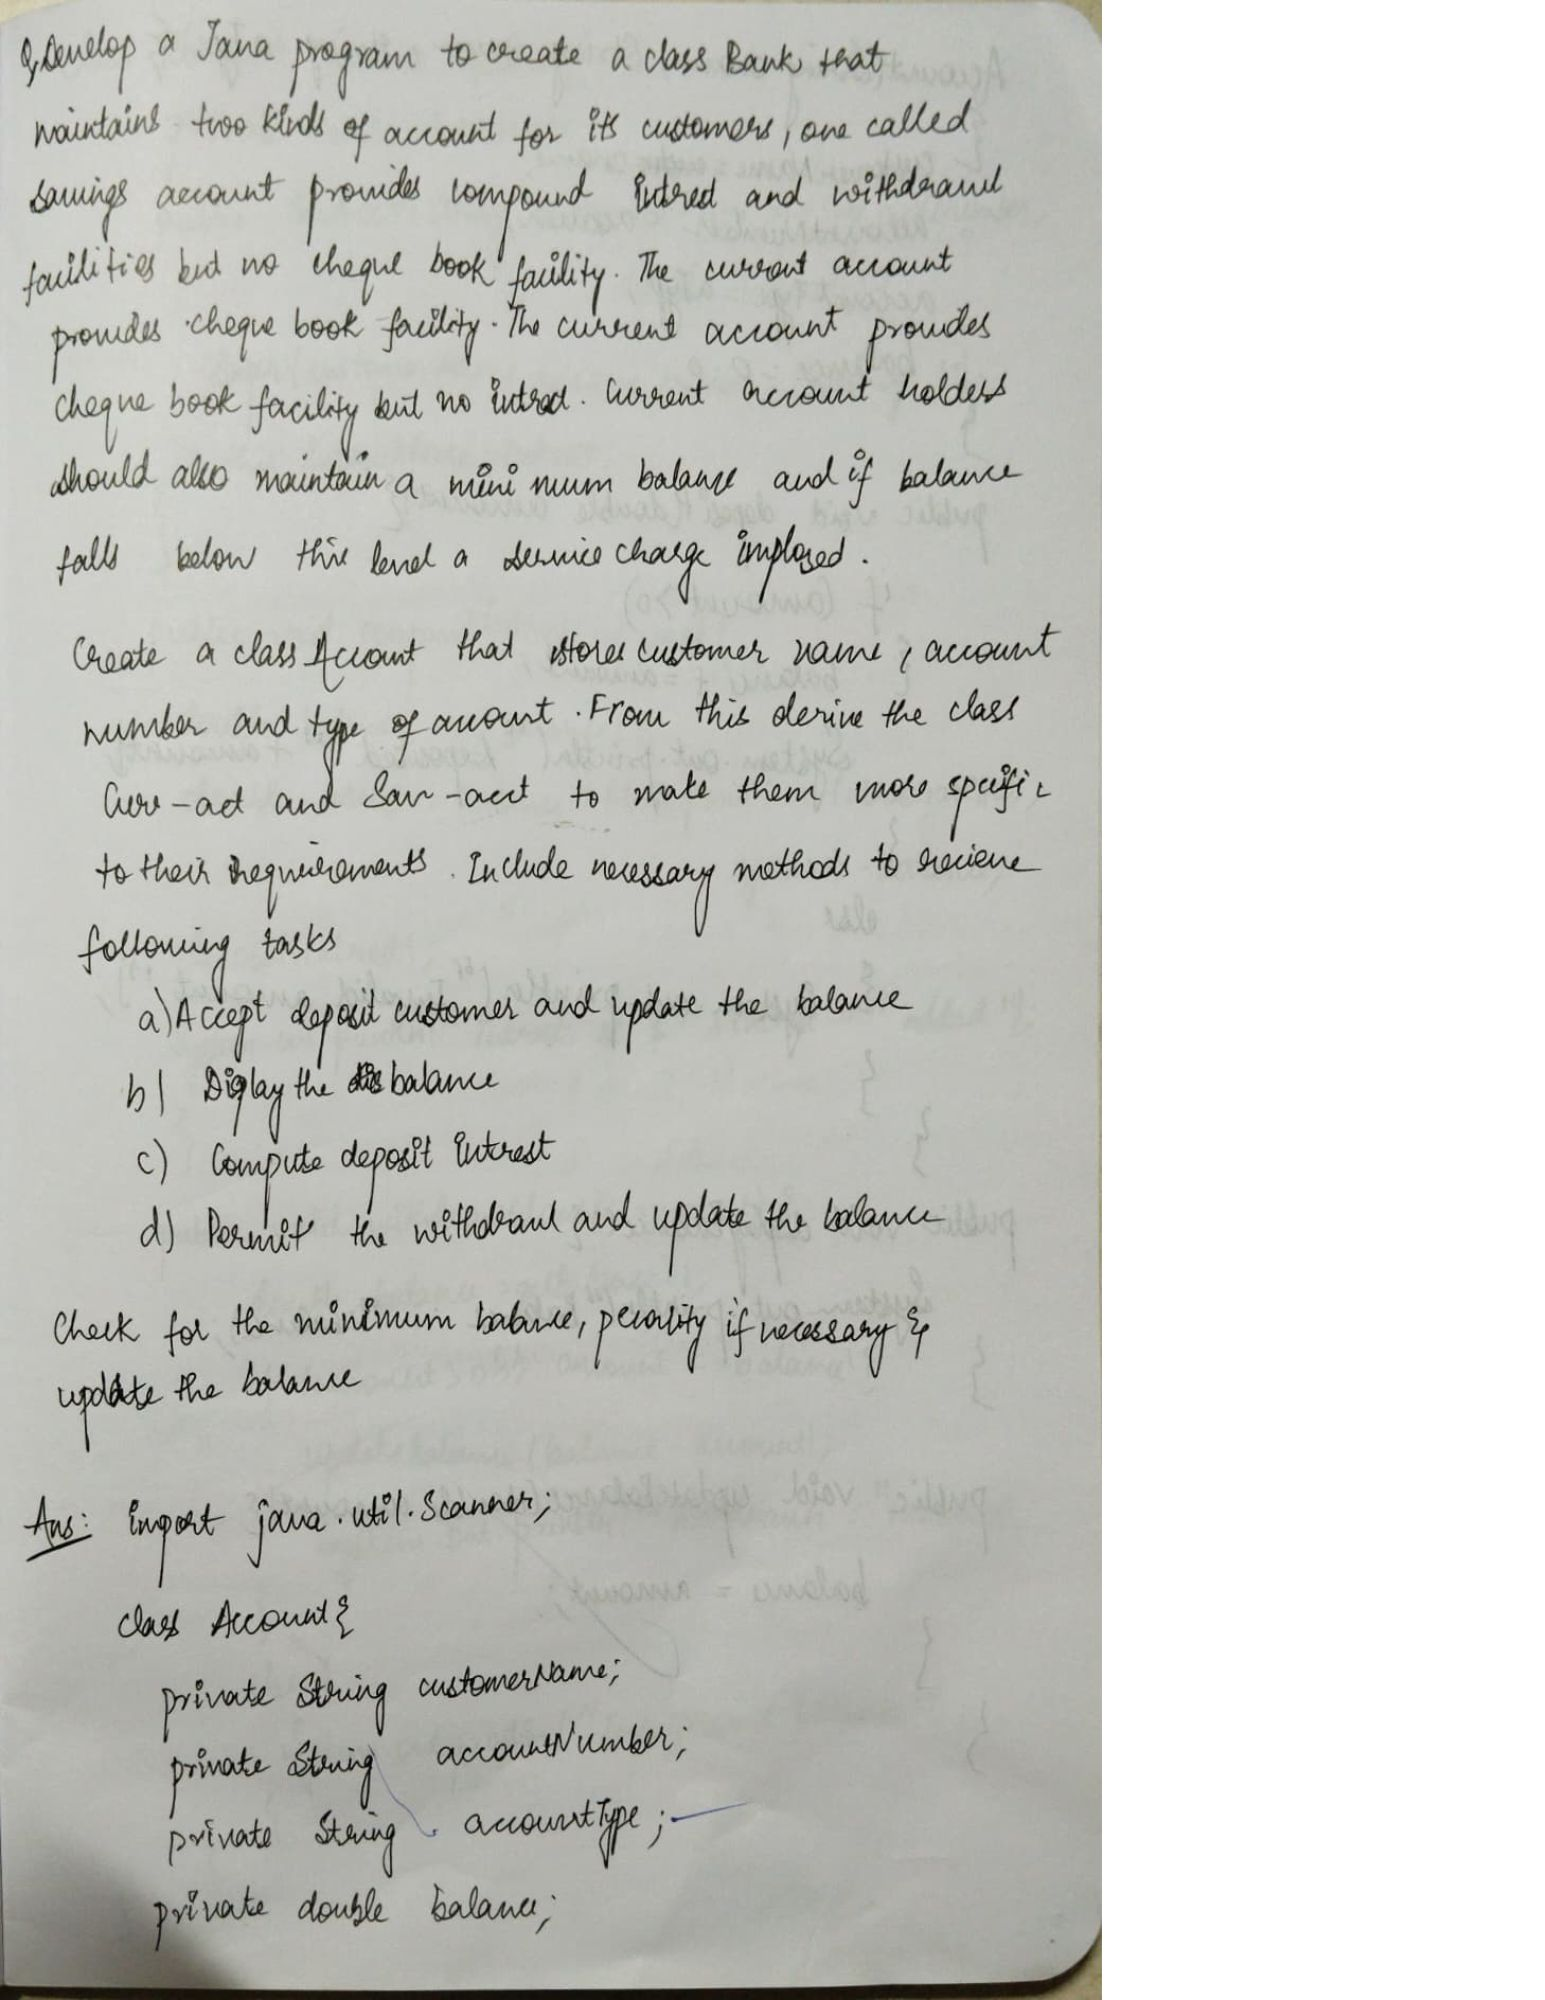 Q, Develop a Java program to create a class Bank that
maintains two kinds of account for its customers, one called
savings account provides compound intrest and withdrawl
facilities but no cheque book facility. The current account
provides cheque book facility. The current account provides
cheque book facility but no intrest. Current account holders
should also maintain a minimum balance and if balance
falls below this level a service charge imposed.
Create a class Account that stores customer name, account
number and type of account. From this derive the class
Curr-act and Sav-acct to make them more specific
to their requirements. Include necessary methods to recieve
following tasks
a) Accept deposit customer and update the balance
b) Display the balance
c) Compute deposit intrest
d) Permit the withdrawl and update the balance
Check for the minimum balance, penality if necessary &
update the balance
Ans: import java.util.Scanner;
class Account {
private String customerName;
private String accountNumber;
private String accountType;
private double balance;